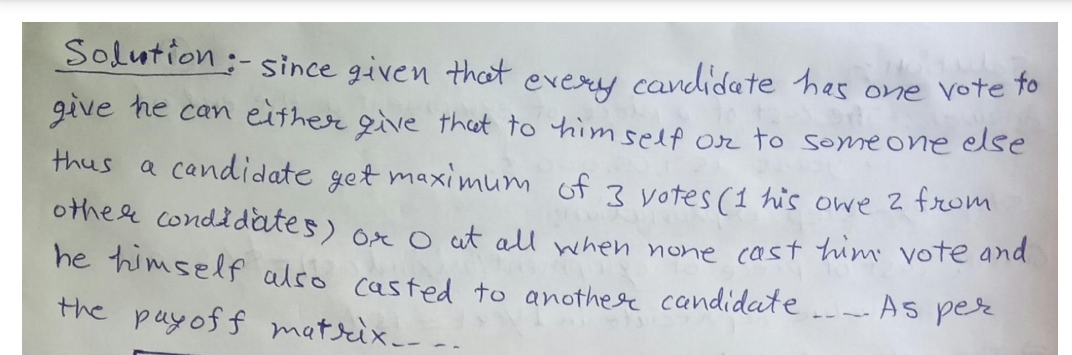 Solution :- since given that every candidate has one vote to
give he can either give that to himself or to someone else
thus a candidate get maximum of 3 votes (1 his owe 2 from
other condidiates) or 0 at all when none cast him vote and
he himself also casted to another candidate ..... As per
the payoff matrix.....